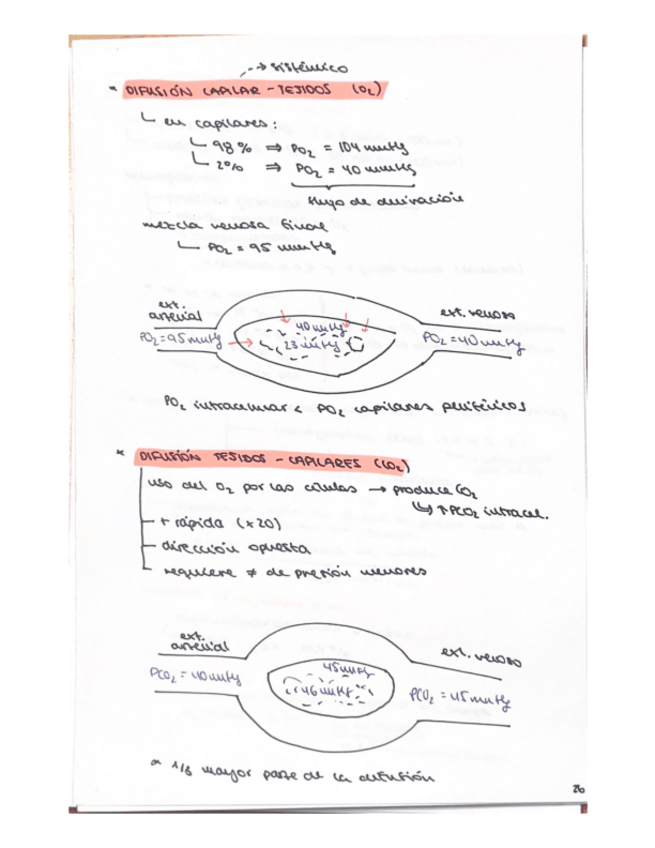 --> sistémico
* DIFUSIÓN CAPILAR - TEJIDOS (O2)
└ en capilares:
└ 98% ⇒ PO2 = 104 mmHg
└ 2% ⇒ PO2 = 40 mmHg
flujo de derivación
mezcla venosa final
└ PO2 = 95 mmHg
ext. arterial
ext. venoso
PO2=95mmHg
40mmHg
23mmHg
PO2=40mmHg
PO2 intracelular < PO2 capilares periféricos
* DIFUSIÓN TEJIDOS - CAPILARES (CO2)
uso del O2 por las células → produce CO2
↳ ↑PCO2 intracel.
+ rápida (x20)
dirección opuesta
requiere ≠ de presión menores
ext. arterial
ext. venoso
PCO2 = 40mmHg
45mmHg
46mmHg
PCO2 = 45mmHg
1/3 mayor parte de la difusión
26